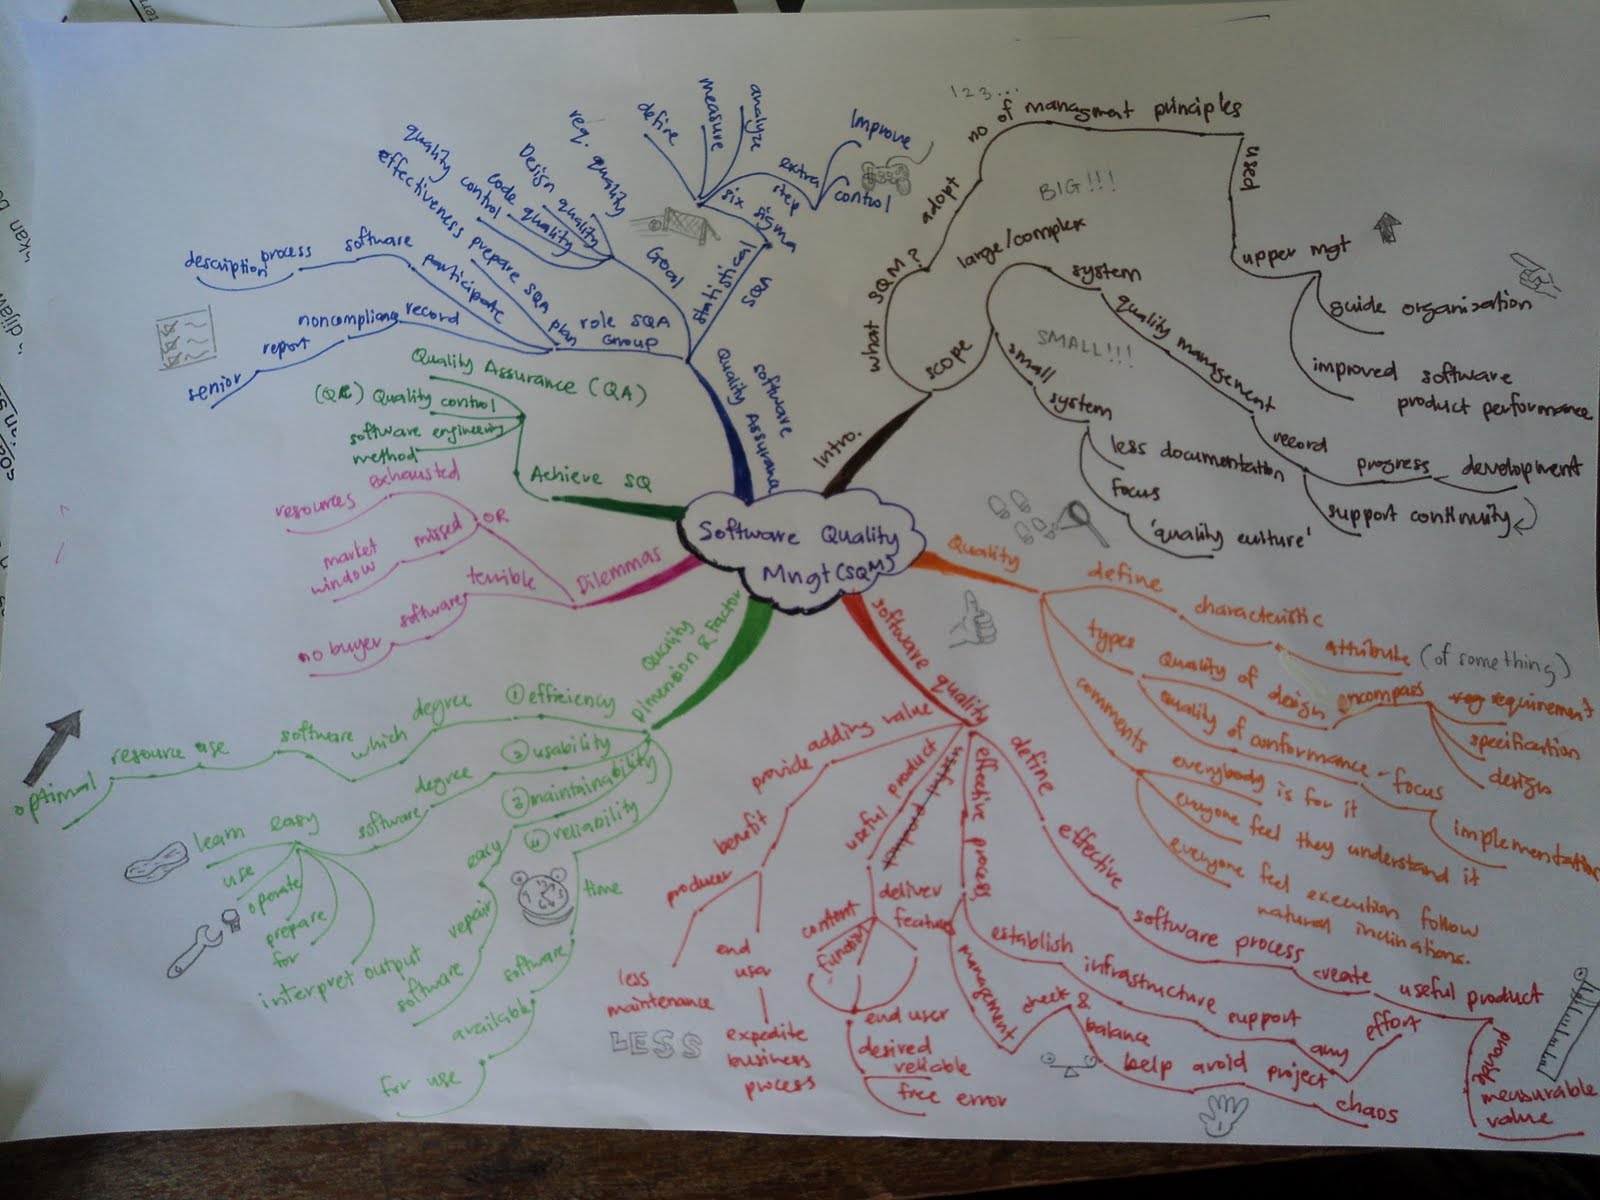 Software Quality
Mngt (SQM)
Intro.
what SQM?
adopt
no of managment principles
1 2 3 ...
used
upper mgt
guide organization
improved software
product performance
scope
BIG!!!
large/complex
system
quality management
record
progress
development
support continuity
SMALL!!!
small
system
less documentation
focus
'quality culture'
Quality
define
characteristic
attribute (of something)
types
Quality of design
encompass
requirement
specification
design
Quality of conformance - focus
implementation
comments
everybody is for it
everyone feel they understand it
everyone feel execution follow
natural inclinations.
software quality
define
effective
software process
create
useful product
provide
measurable
value
effective process
establish infrastructure support
any
effort
management
check &
balance
help avoid project
chaos
useful product
deliver
content
function
features
end user
desired
reliable
free error
adding value
provide
benefit
producer
less
maintenance
LESS
end
user
expedite
business
process
Quality
Dimension & Factor
① efficiency
degree
which
software
resource use
optimal
② usability
degree
software
easy
learn
use
operate
prepare
for
interpret output
③ maintainability
easy
repair
software
④ reliability
time
software
available
for use
Dilemmas
terrible
software
no buyer
OR
missed
market
window
exhausted
resources
Achieve SQ
Quality Assurance (QA)
(QC) Quality control
software engineering
method
software
Quality Assurance
role SQA
Group
prepare SQA
plan
participate
software
process
description
record
noncompliance
report
senior
Goal
req. quality
Design quality
code quality
quality control
effectiveness
statistical
SQA
six sigma
define
measure
analyze
extra
step
Improve
control